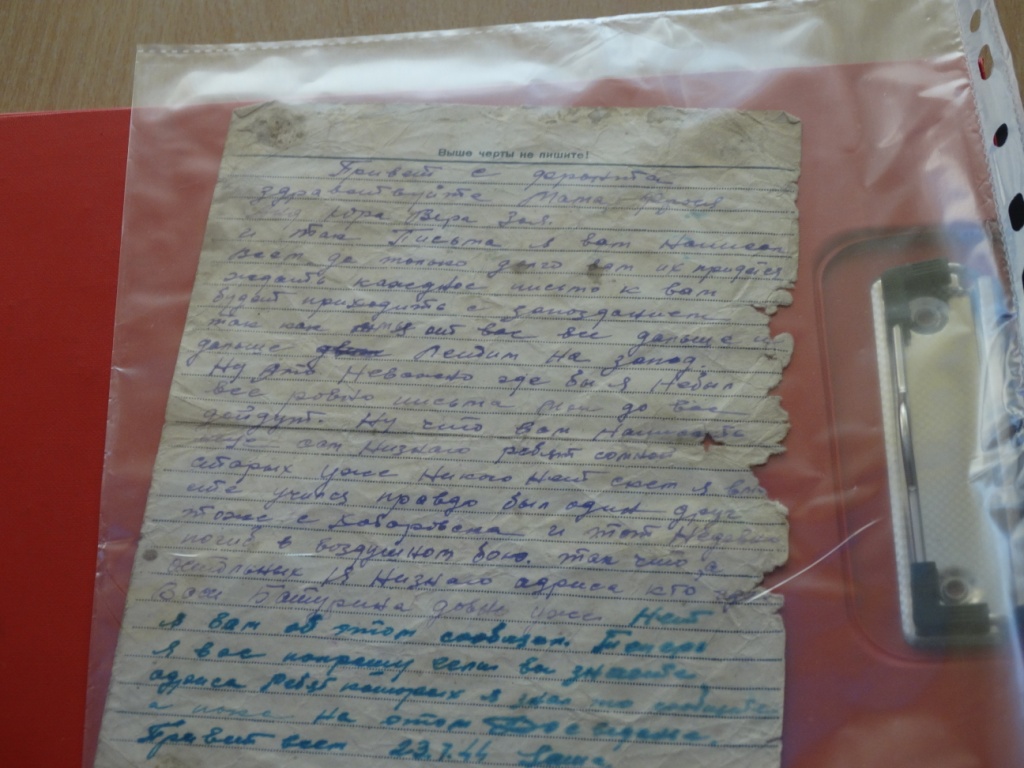 Выше черты не пишите!
Привет с фронта
здравствуйте Мама Фрося
Юра Вера Зоя.
и так Письма я вам написал
всем да только долго вам их придётся
ждать каждное письмо к вам
будет приходить с запозданием
так как от вас все дальше и
дальше Летим На запад
Ну это Неважно где бы я Небыл
все ровно письма мои до вас
дойдут. Ну что вам написать
ребят сомной
старых уже Никого Нет с кем я
учился правдо был один друг
тоже с Хабаровска и тот Недавно
погиб в воздушном бою. так что
остальных я Низнаю адриса кто
Батурина давно уже Нет
я вам об этом сообщал. Теперь
я вас попрошу если вы знаите
адриса Ребят которых я знал то сообщите
а пока На этом До свидания.
Привет всем 23.7.44 Саша